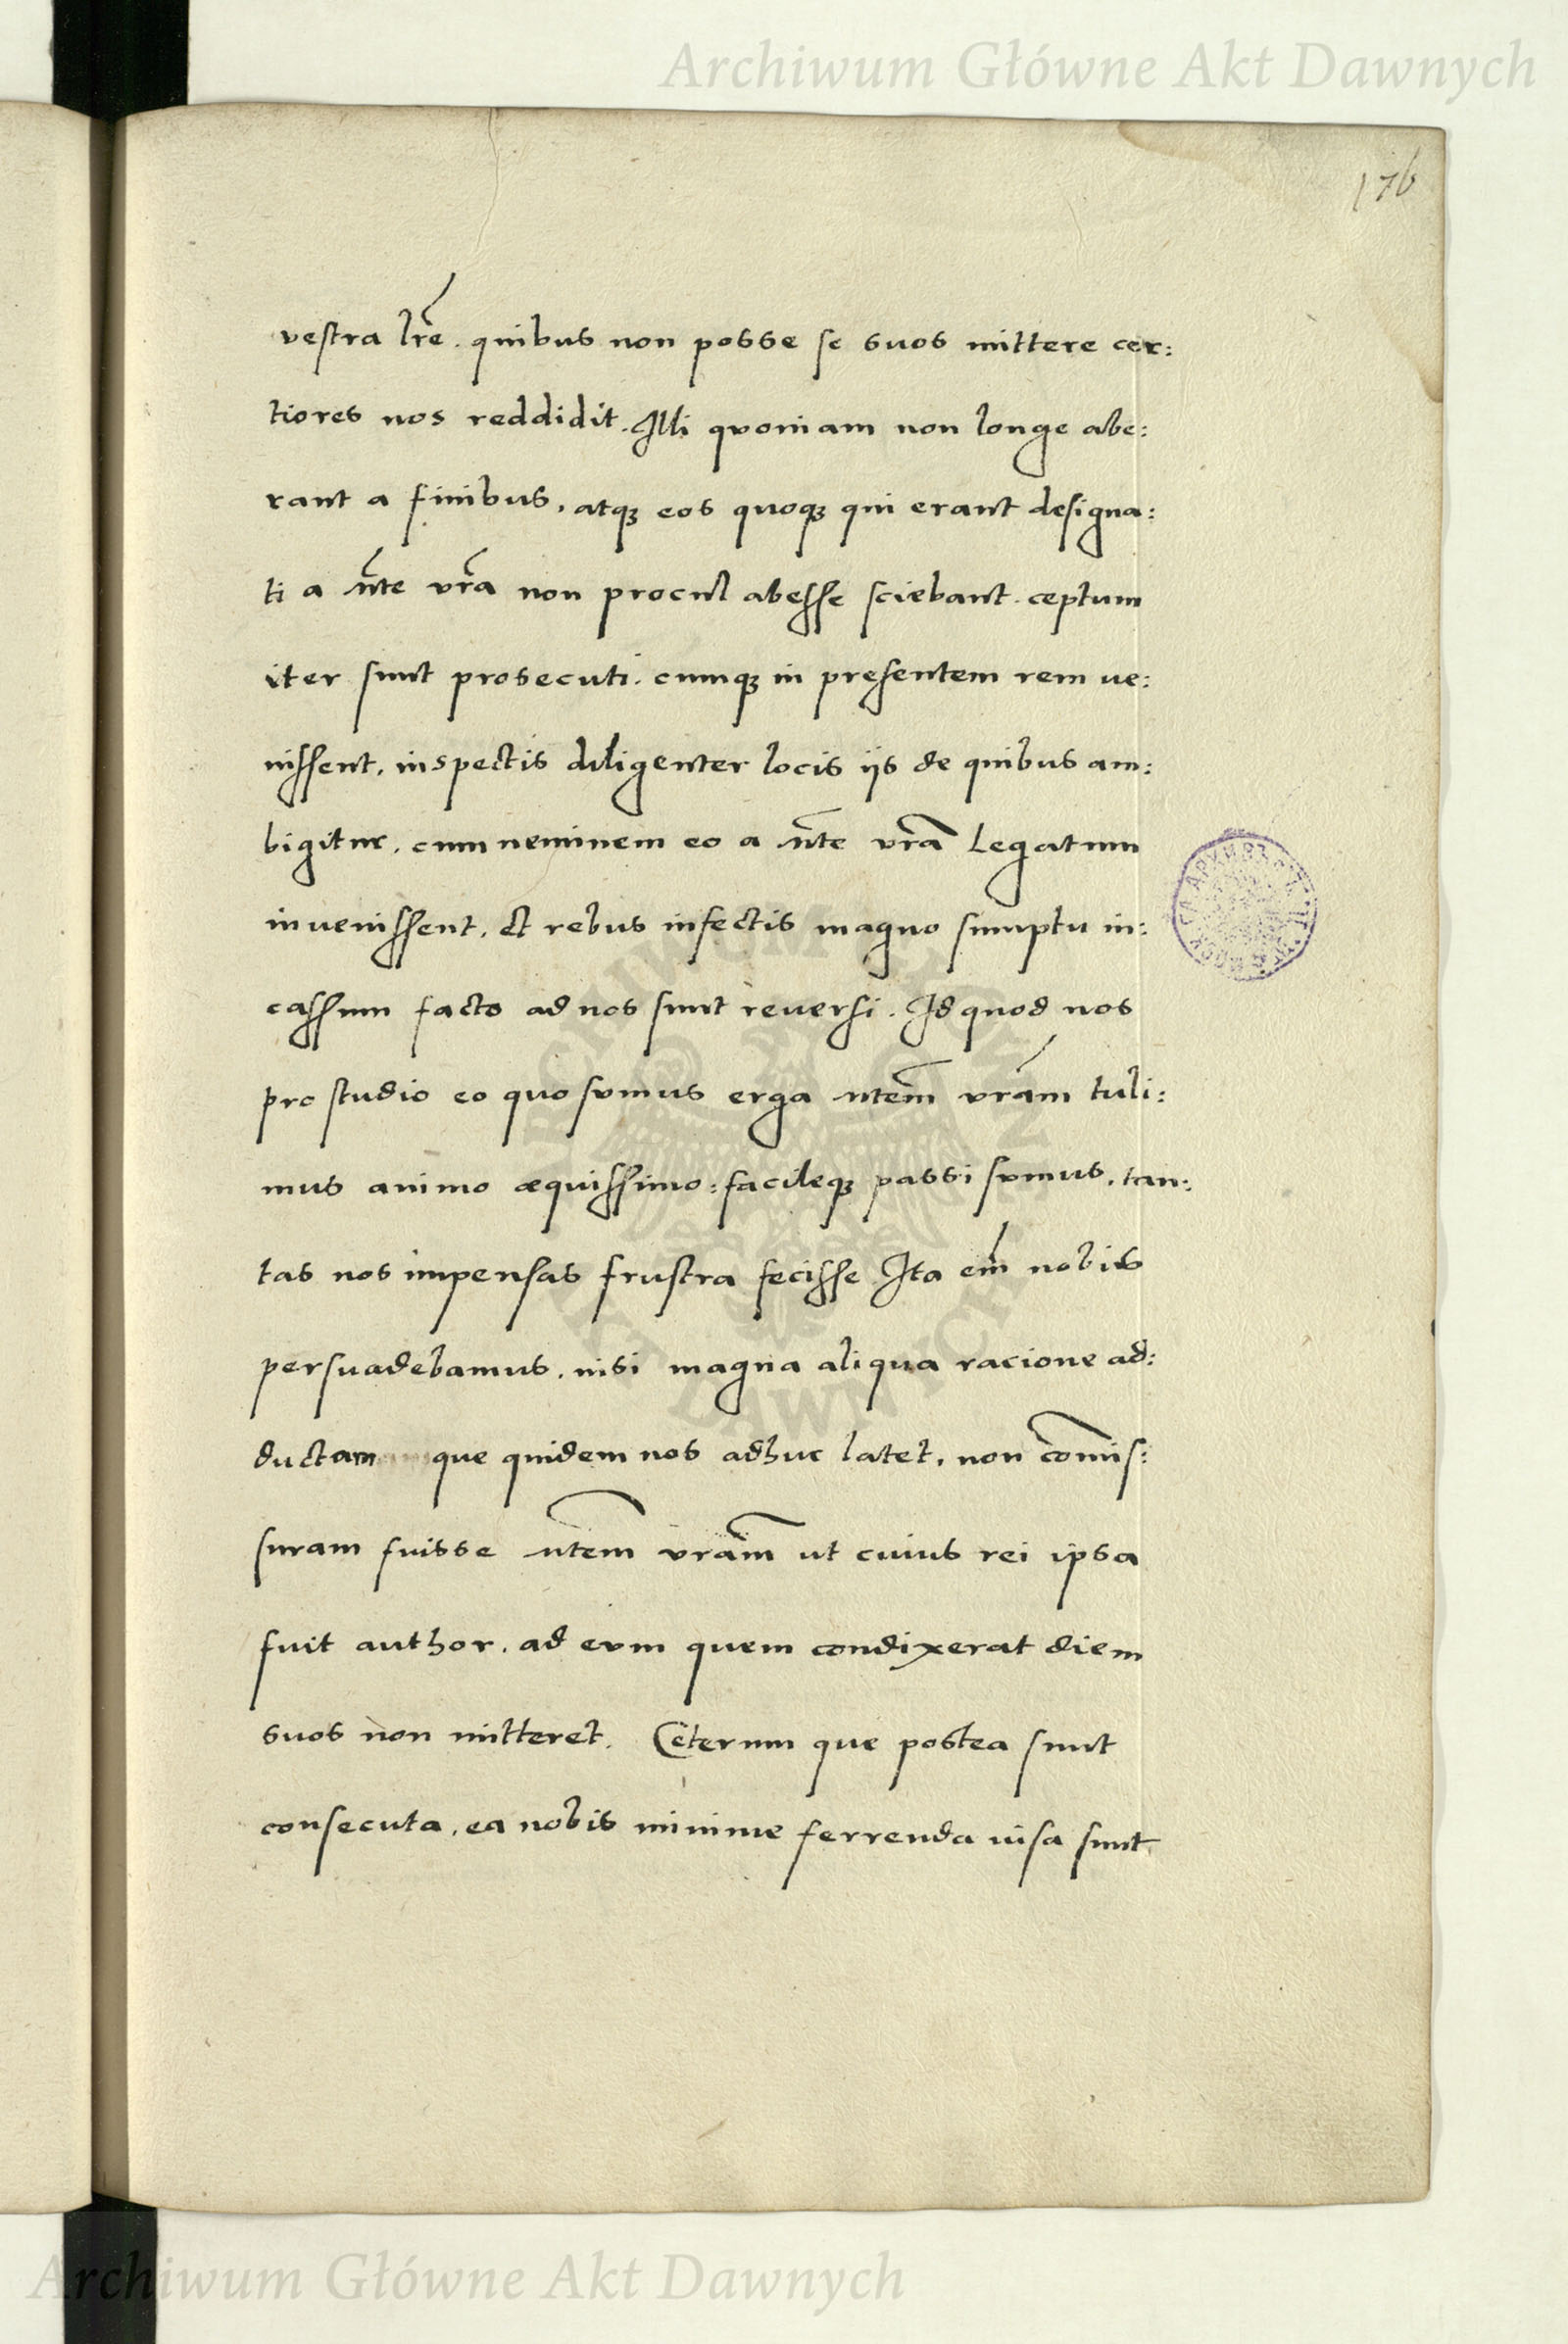 Archiwum Główne Akt Dawnych
176
vestra lr̃e. quibus non posse se suos mittere cer:
tiores nos reddidit. Illi quoniam non longe abe:
rant a finibus, atqꝫ eos quoqꝫ qui erant designa:
ti a n̄te vr̃a non procul abesse sciebant. ceptum
iter sunt prosecuti. cumqꝫ in presentem rem ve:
nissent, inspectis diligenter locis iis de quibus am:
bigitur, cum neminem eo a n̄te vr̃a Legatum
invenissent, et rebus infectis magno sumptu in:
cassum facto ad nos sunt reversi. Id quod nos
pro studio eo quo sumus erga ntem̄ vram̄ tuli:
mus animo æquissimo: facileqꝫ passi sumus, tan:
tas nos impensas frustra fecisse. Ita em̄ nobis
persuadebamus, nisi magna aliqua racione ad:
ductam que quidem nos adhuc latet, non com̄is:
suram fuisse ntem̄ vram̄ ut cuius rei ipsa
fuit author, ad eum quem condixerat diem
suos non mitteret. Ceterum que postea sunt
consecuta, ea nobis minime ferrenda visa sunt
Archiwum Główne Akt Dawnych